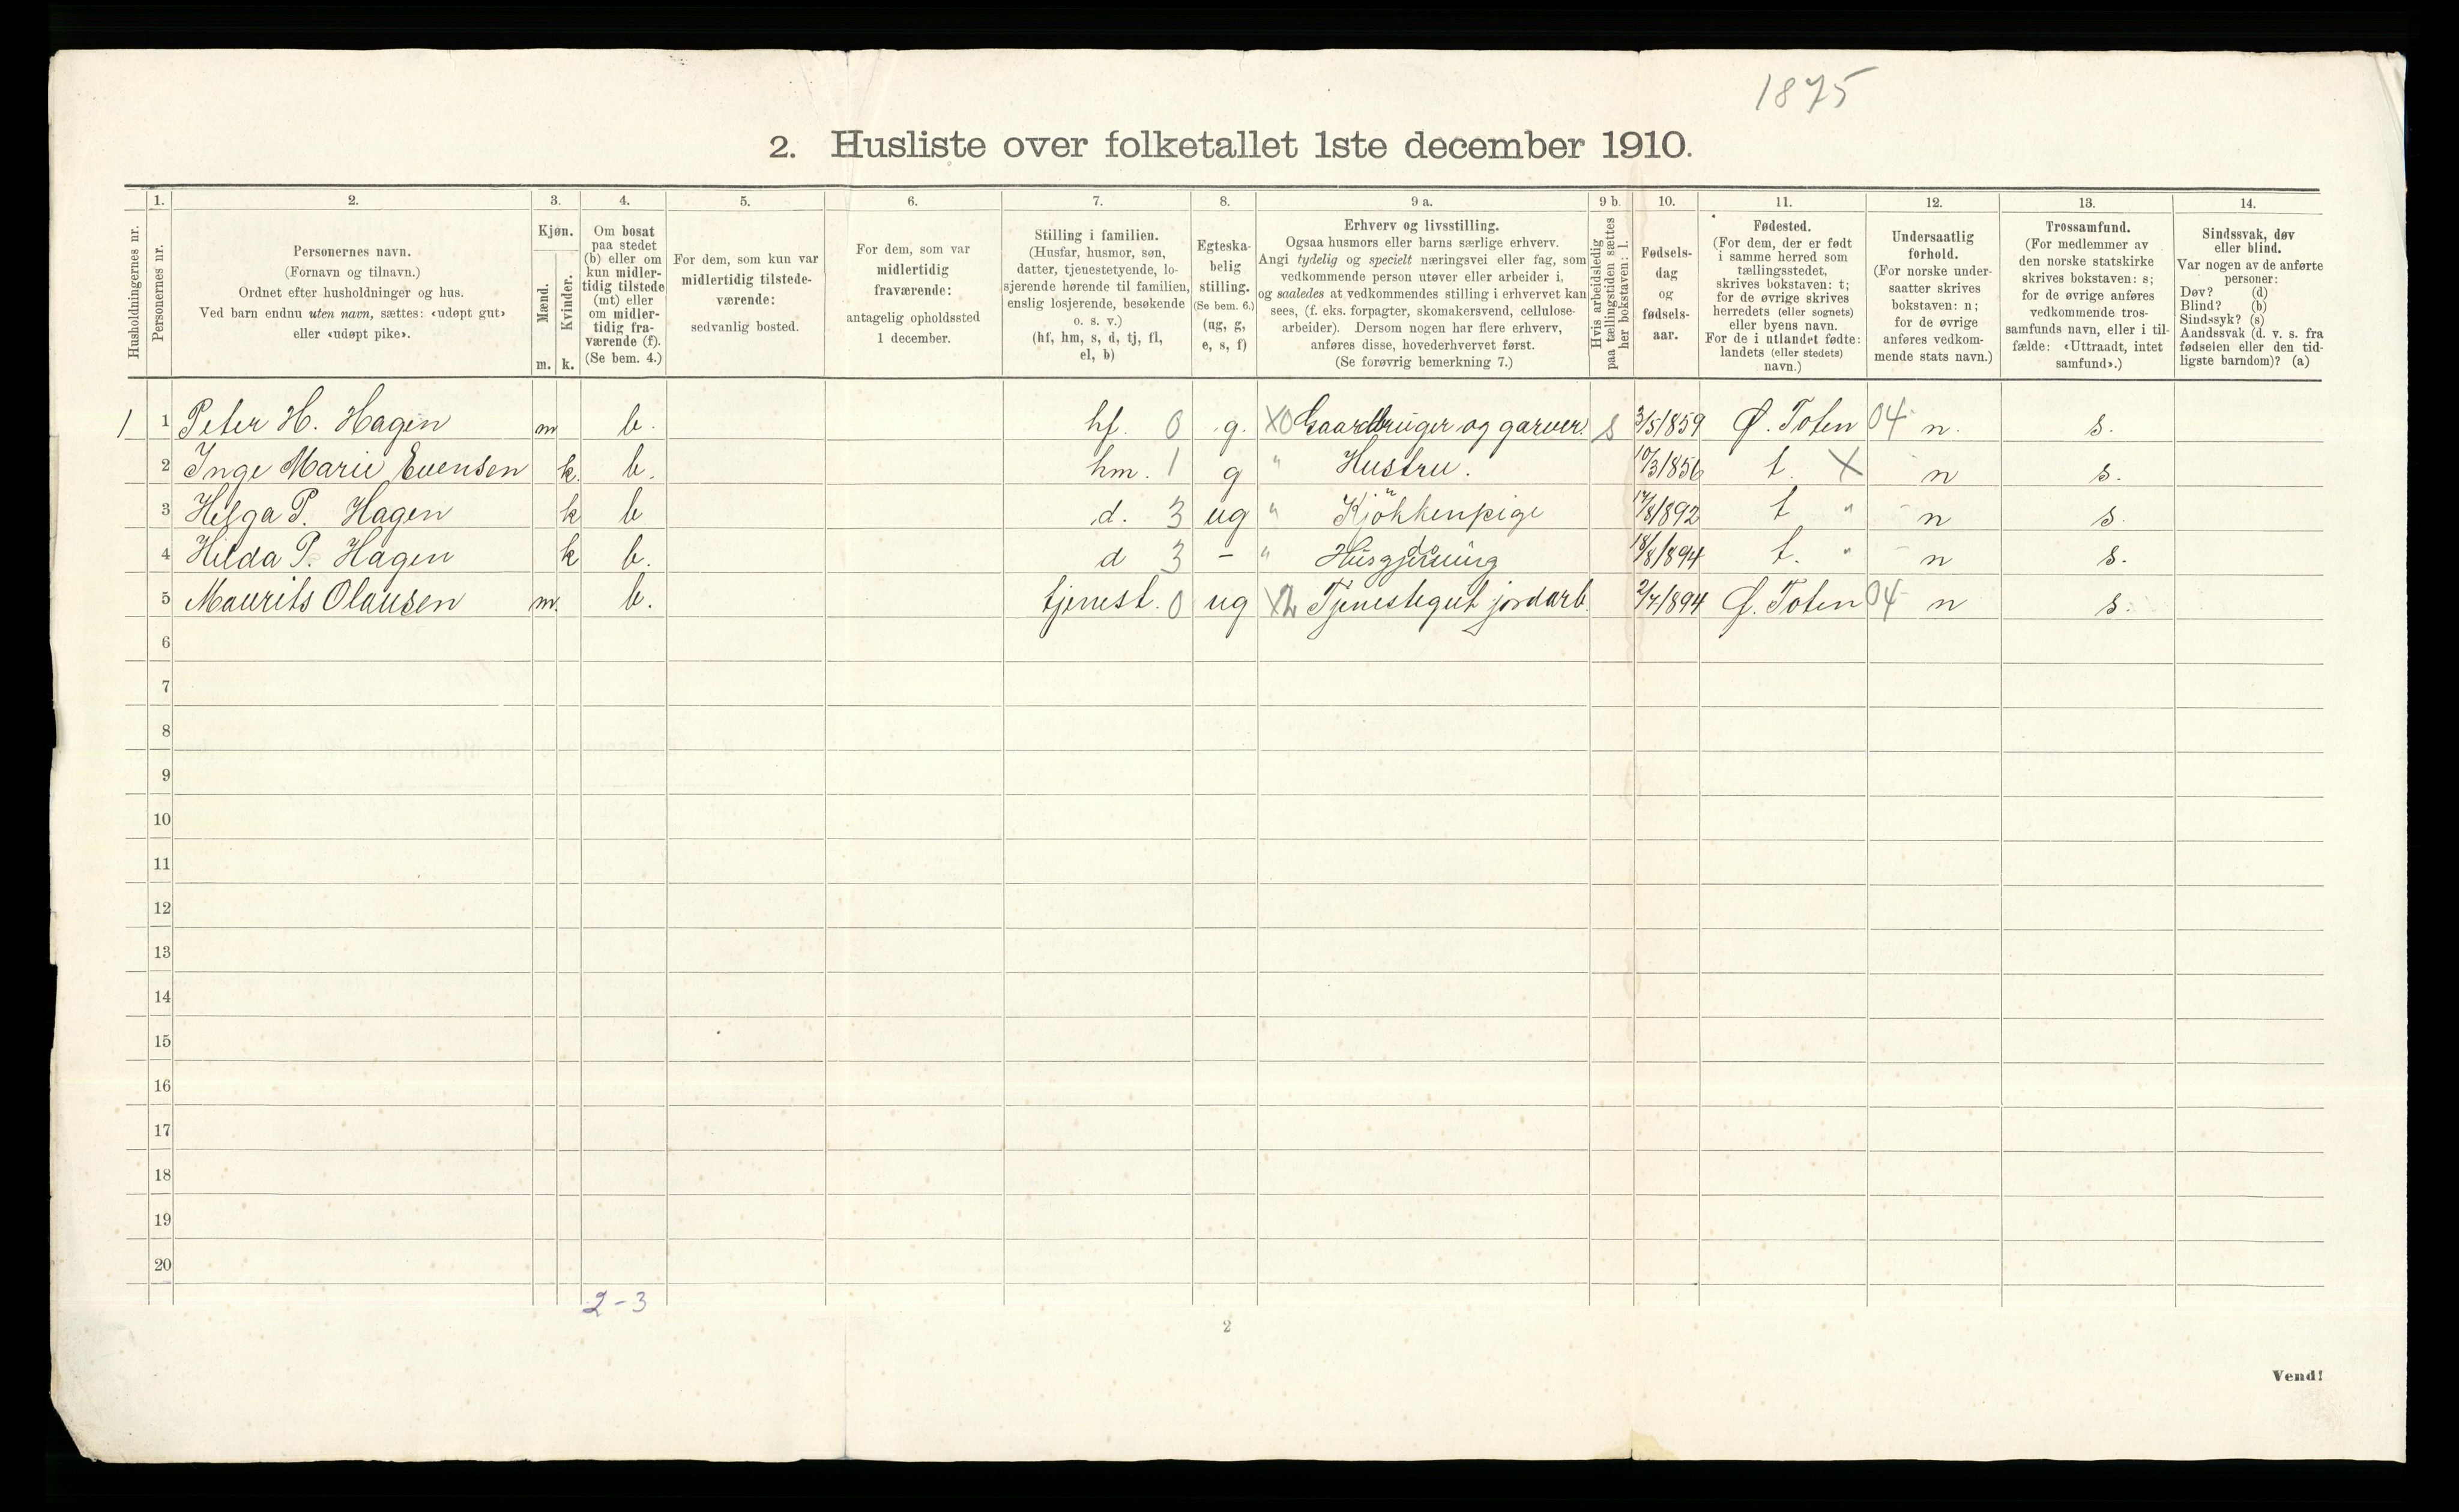 1875
2. Husliste over folketallet 1ste december 1910.
Husholdningernes nr.
1.
Personernes nr.
2.
Personernes navn.
(Fornavn og tilnavn.)
Ordnet efter husholdninger og hus.
Ved barn endnu uten navn, sættes: «udøpt gut»
eller «udøpt pike».
3.
Kjøn.
Mænd.
m.
Kvinder.
k.
4.
Om bosat
paa stedet
(b) eller om
kun midler-
tidig tilstede
(mt) eller
om midler-
tidig fra-
værende (f).
(Se bem. 4.)
5.
For dem, som kun var
midlertidig tilstede-
værende:
sedvanlig bosted.
6.
For dem, som var
midlertidig
fraværende:
antagelig opholdssted
1 december.
7.
Stilling i familien.
(Husfar, husmor, søn,
datter, tjenestetyende, lo-
sjerende hørende til familien,
enslig losjerende, besøkende
o. s. v.)
(hf, hm, s, d, tj, fl,
el, b)
8.
Egteska-
belig
stilling.
(Se bem. 6.)
(ug, g,
e, s, f)
9 a.
Erhverv og livsstilling.
Ogsaa husmors eller barns særlige erhverv.
Angi tydelig og specielt næringsvei eller fag, som
vedkommende person utøver eller arbeider i,
og saaledes at vedkommendes stilling i erhvervet kan
sees, (f. eks. forpagter, skomakersvend, cellulose-
arbeider). Dersom nogen har flere erhverv,
anføres disse, hovederhvervet først.
(Se forøvrig bemerkning 7.)
9 b.
Hvis arbeidsledig
paa tællingstiden sættes
her bokstaven: l.
10.
Fødsels-
dag
og
fødsels-
aar.
11.
Fødested.
(For dem, der er født
i samme herred som
tællingsstedet,
skrives bokstaven: t;
for de øvrige skrives
herredets (eller sognets)
eller byens navn.
For de i utlandet fødte:
landets (eller stedets)
navn.)
12.
Undersaatlig
forhold.
(For norske under-
saatter skrives
bokstaven: n;
for de øvrige
anføres vedkom-
mende stats navn.)
13.
Trossamfund.
(For medlemmer av
den norske statskirke
skrives bokstaven: s;
for de øvrige anføres
vedkommende tros-
samfunds navn, eller i til-
fælde: «Uttraadt, intet
samfund».)
14.
Sindssvak, døv
eller blind.
Var nogen av de anførte
personer:
Døv? (d)
Blind? (b)
Sindssyk? (s)
Aandssvak (d. v. s. fra
fødselen eller den tid-
ligste barndom)? (a)
1 1 Peter H. Hagen m b. hf. 0 g. X0 Gaardbruger og garver. s 3/5 1859 Ø. Toten 04 n. s.
2 Inge Marie Evensen k. b. hm. 1 g " Hustru. 10/3 1856 t. X n s.
3 Helga P. Hagen k b d. 3 ug " Kjökkenpige 17/8 1892 t " n s
4 Hilda P. Hagen k b. d 3 - " Husgjerning 18/8 1894 t. " n s.
5 Maurits Olausen m. b. tjenest. 0 ug Tjenestegut jordarb. 2/7 1894 Ø. Toten 04 n s.
6
7
8
9
10
11
12
13
14
15
16
17
18
19
20
2-3
2
Vend!